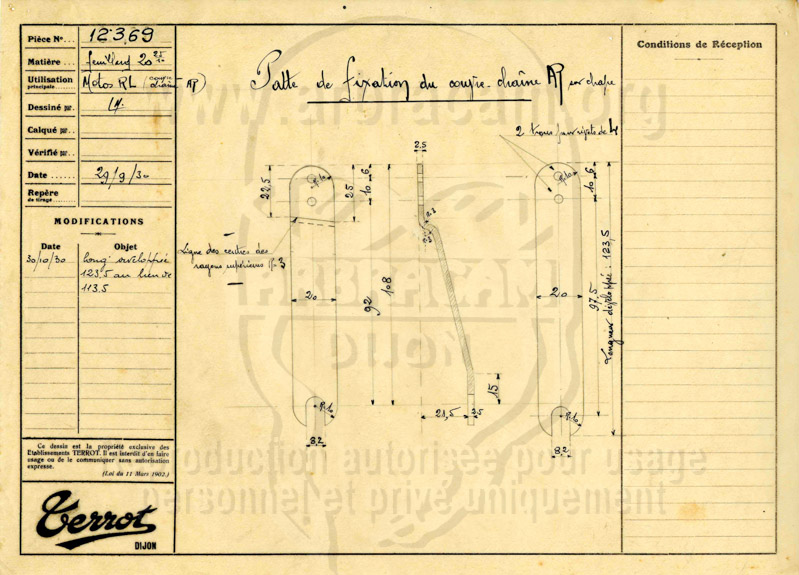 Pièce No... 12369
Matière... feuillard 20 25/10
Utilisation principale... Motos RL (coupe chaîne AR)
Dessiné par.
Calqué par.
Vérifié par.
Date... 29/9/30
Repère de tirage.
MODIFICATIONS
Date Objet
30/10/30 Long' développée
123.5 au lieu de
113.5
Ce dessin est la propriété exclusive des
Etablissements TERROT. Il est interdit d'en faire
usage ou de le communiquer sans autorisation
expresse.
(Loi du 11 Mars 1902.)
Terrot
DIJON
Patte de fixation du coupe-chaîne AR sur chape
2 trous pour rivets de 4
Ligne des centres des
rayons supérieurs R=3
22,5
R.10
25
10 6
20
92
108
R.10
8.2
2.5
21,5
2.5
15
R.10
10 6
20
97,5
Longueur développée : 123,5
R.10
8.2
Conditions de Réception
www.arbracam.org
ARBRACAM
DIJON
Reproduction autorisée pour usage
personnel et privé uniquement